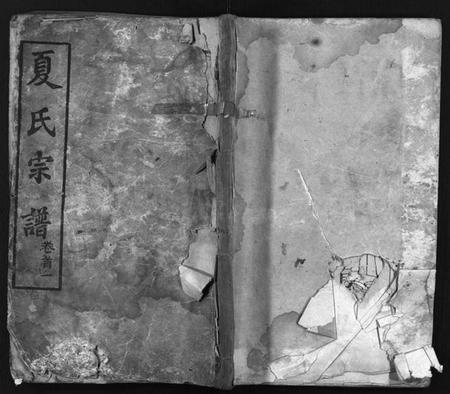 夏氏宗譜
卷首一